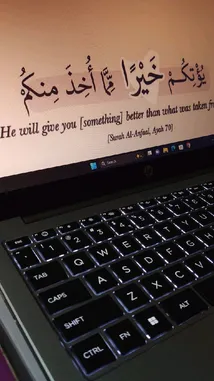 يُؤْتِكُمْ خَيْرًا مِّمَّا أُخِذَ مِنكُمْ
He will give you [something] better than what was taken
[Surah Al-Anfaal, Ayah 70]
Search
Q W E R T Y
TAB
A S D F G H
CAPS
Z X C V
SHIFT
ALT
FN
CTRL